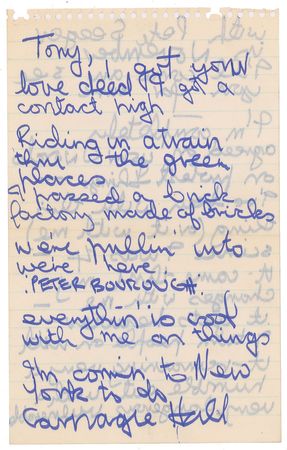 Tony, I got your
love deed & I got a
contact high
Riding in a train
thru the green
places
I passed a brick
factory made of bricks
we're pullin' into
we're here
"PETER BOUROUGH"
everythin' is cool
with me on things
I'm comin' to New
York to do
Carnagie Hall